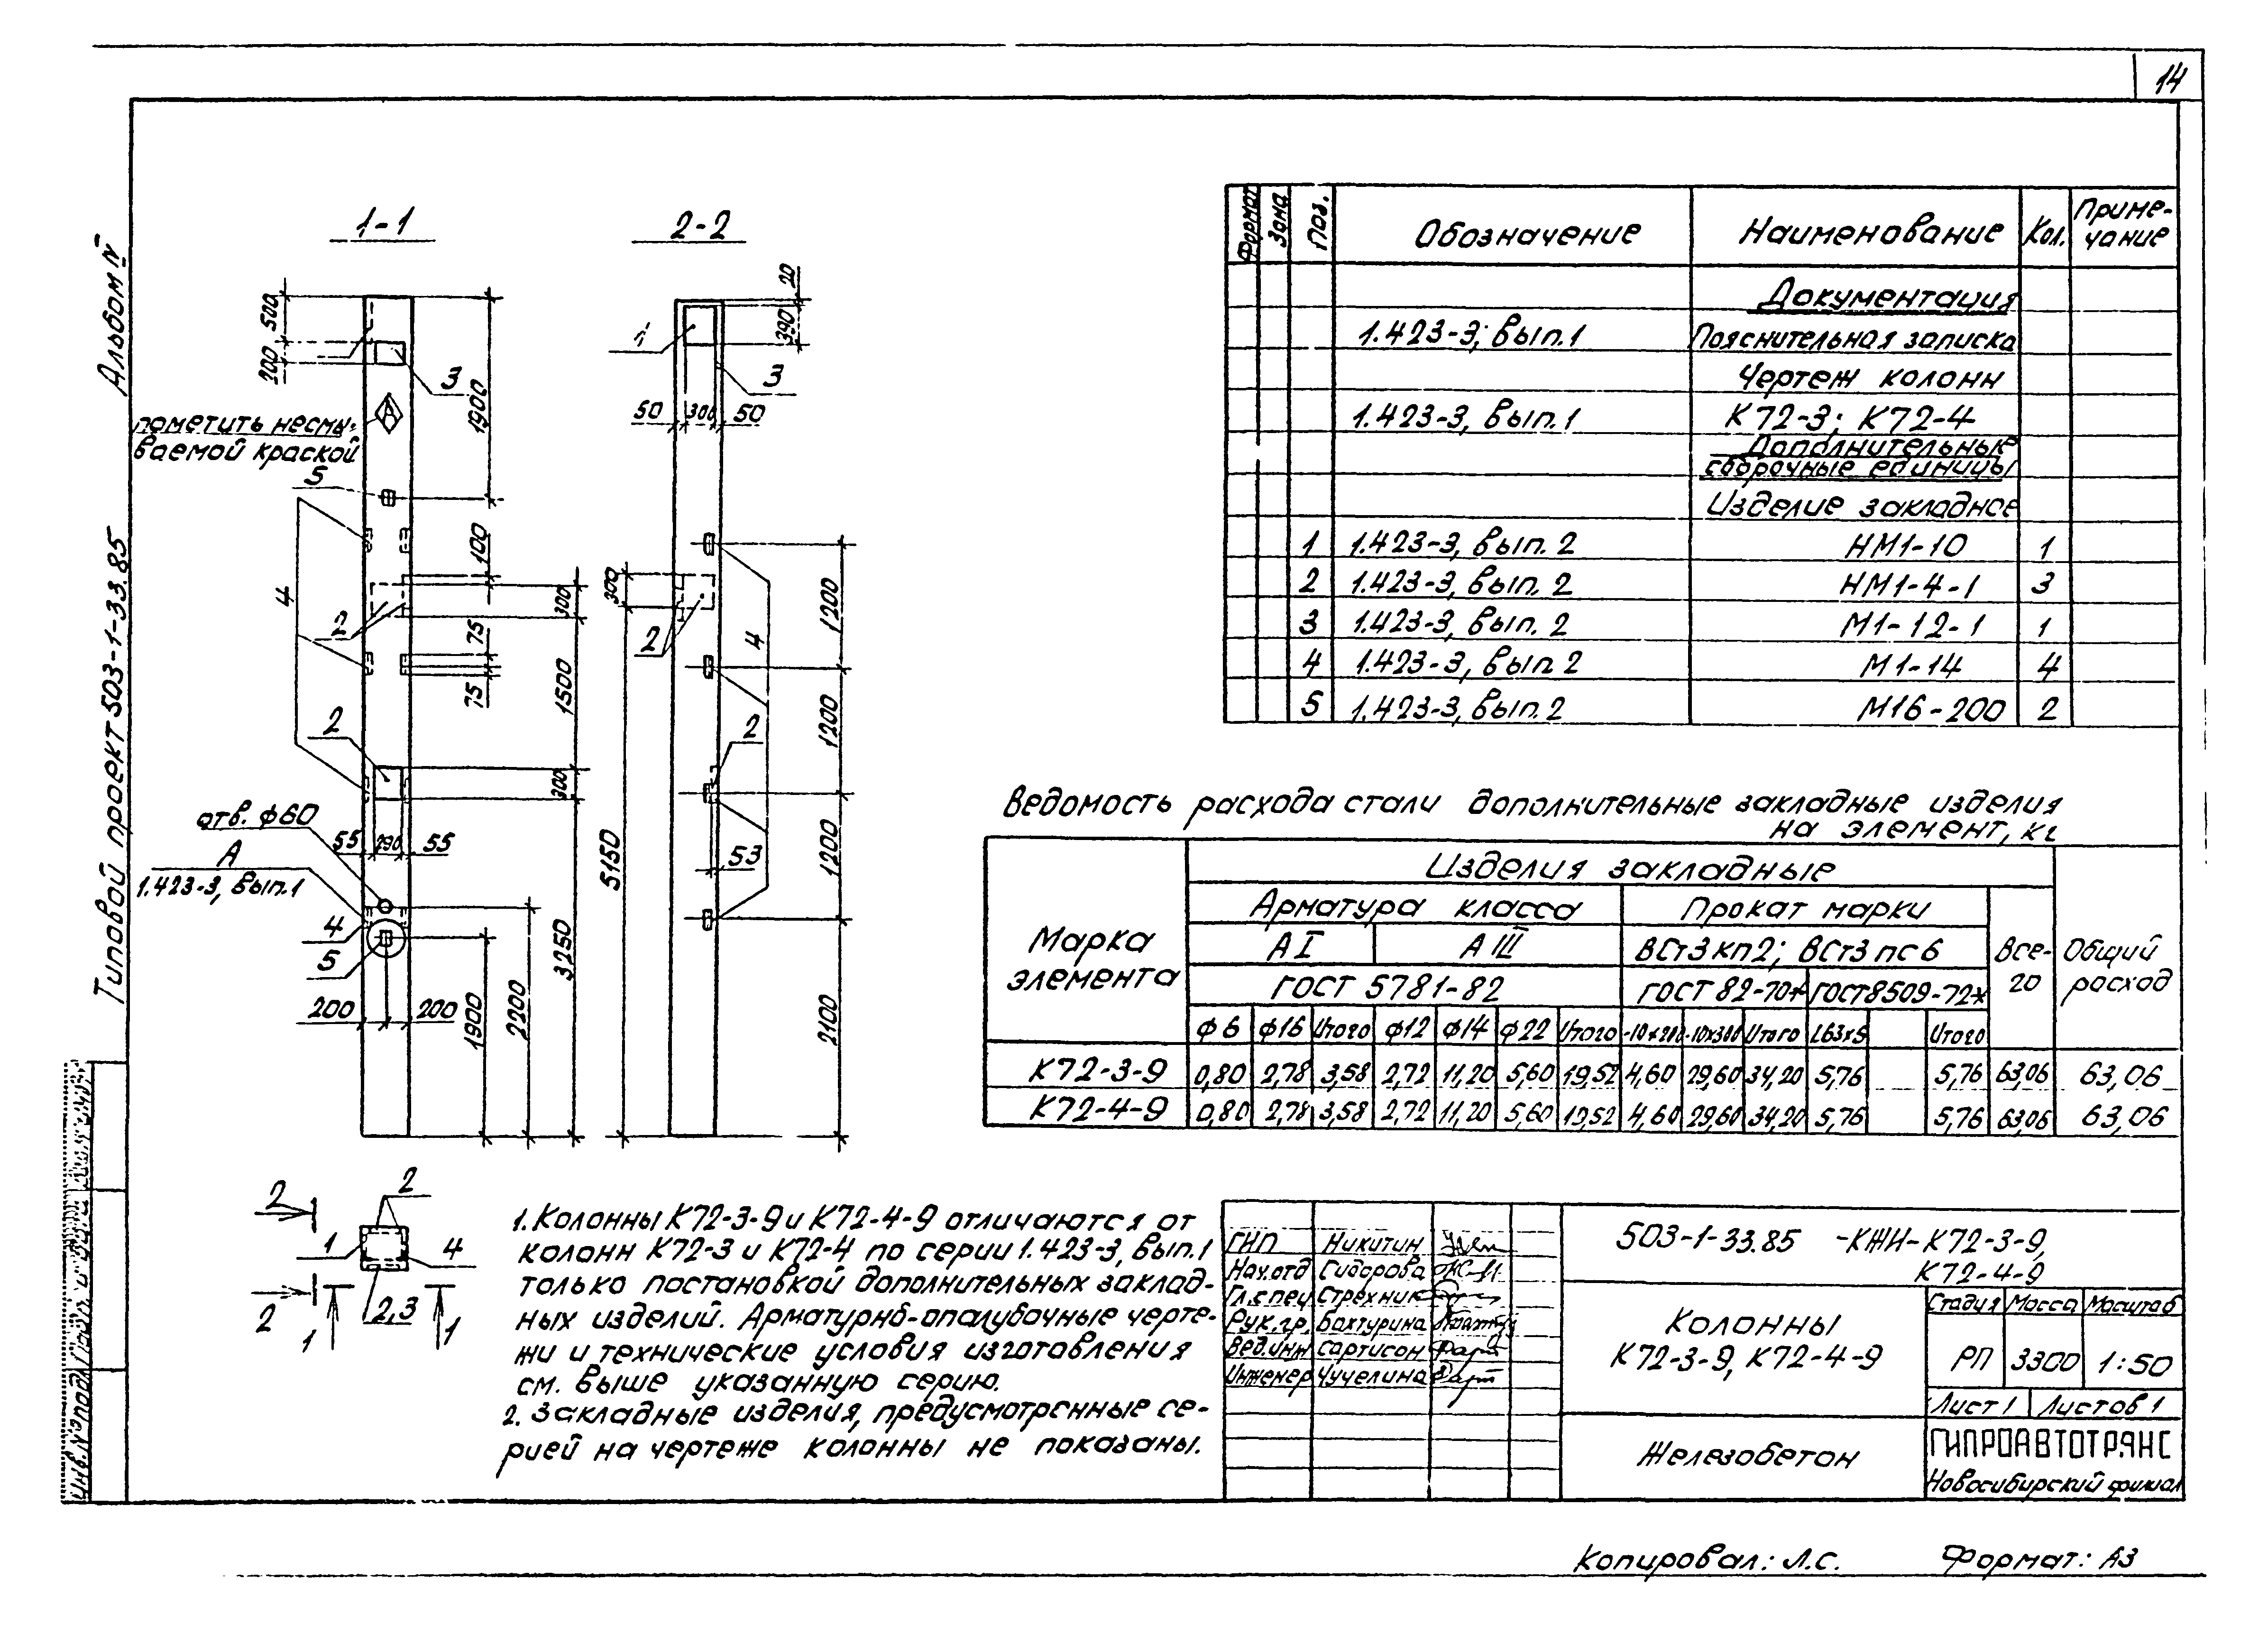 14
Альбом IV
Типовой проект 503-1-33.85
1-1
2-2
500
200
1900
3
пометить несмы-
ваемой краской
А
5
4
100
300
2
75
75
1500
2
300
отв. ф60
55
290
55
А
1.423-3, вып.1
4
5
200
200
1900
2200
3250
20
390
1
3
50
300
50
300
2
4
1200
1200
2
53
1200
5150
2100
2
2
1
4
2
2,3
1
1
Формат
Зона
Поз.
Обозначение
Наименование
Кол.
Приме-
чание
Документация
1.423-3; вып.1 Пояснительная записка
Чертеж колонн
1.423-3, вып.1 К72-3; К72-4
Дополнительные
сборочные единицы
Изделие закладное
1 1.423-3, вып. 2 НМ1-10 1
2 1.423-3, вып. 2 НМ1-4-1 3
3 1.423-3, вып. 2 М1-12-1 1
4 1.423-3, вып 2 М1-14 4
5 1.423-3, вып. 2 М16-200 2
Ведомость расхода стали дополнительные закладные изделия
на элемент, кг
Марка
элемента
Изделия закладные
Арматура класса
Прокат марки
АI АIII
ВСт3кп2; ВСт3пс6
Все-
го
Общий
расход
ГОСТ 5781-82 ГОСТ 82-70* ГОСТ 8509-72*
ф6 ф16 Итого ф12 ф14 ф22 Итого -10х200 -10х300 Итого L63х5 Итого
К72-3-9 0,80 2,78 3,58 2,72 11,20 5,60 19,52 4,60 29,60 34,20 5,76 5,76 63,06 63,06
К72-4-9 0,80 2,78 3,58 2,72 11,20 5,60 19,52 4,60 29,60 34,20 5,76 5,76 63,06 63,06
1. Колонны К72-3-9 и К72-4-9 отличаются от
колонн К72-3 и К72-4 по серии 1.423-3, вып.1
только постановкой дополнительных заклад-
ных изделий. Арматурно-опалубочные черте-
жи и технические условия изготовления
см. выше указанную серию.
2. Закладные изделия, предусмотренные се-
рией на чертеже колонны не показаны.
ГИП Никитин
Нач.отд Сидорова
Гл.спец Стрехник
Рук.гр. Бахтурина
Вед.инж Сартисон
Инженер Чучелина
503-1-33.85 -КЖИ-К72-3-9,
К72-4-9
Колонны
К72-3-9, К72-4-9
Стадия Масса Масштаб
РП 3300 1:50
Лист 1 Листов 1
Железобетон
ГИПРОАВТОТРАНС
Новосибирский филиал
Копировал: Л.С. Формат: А3